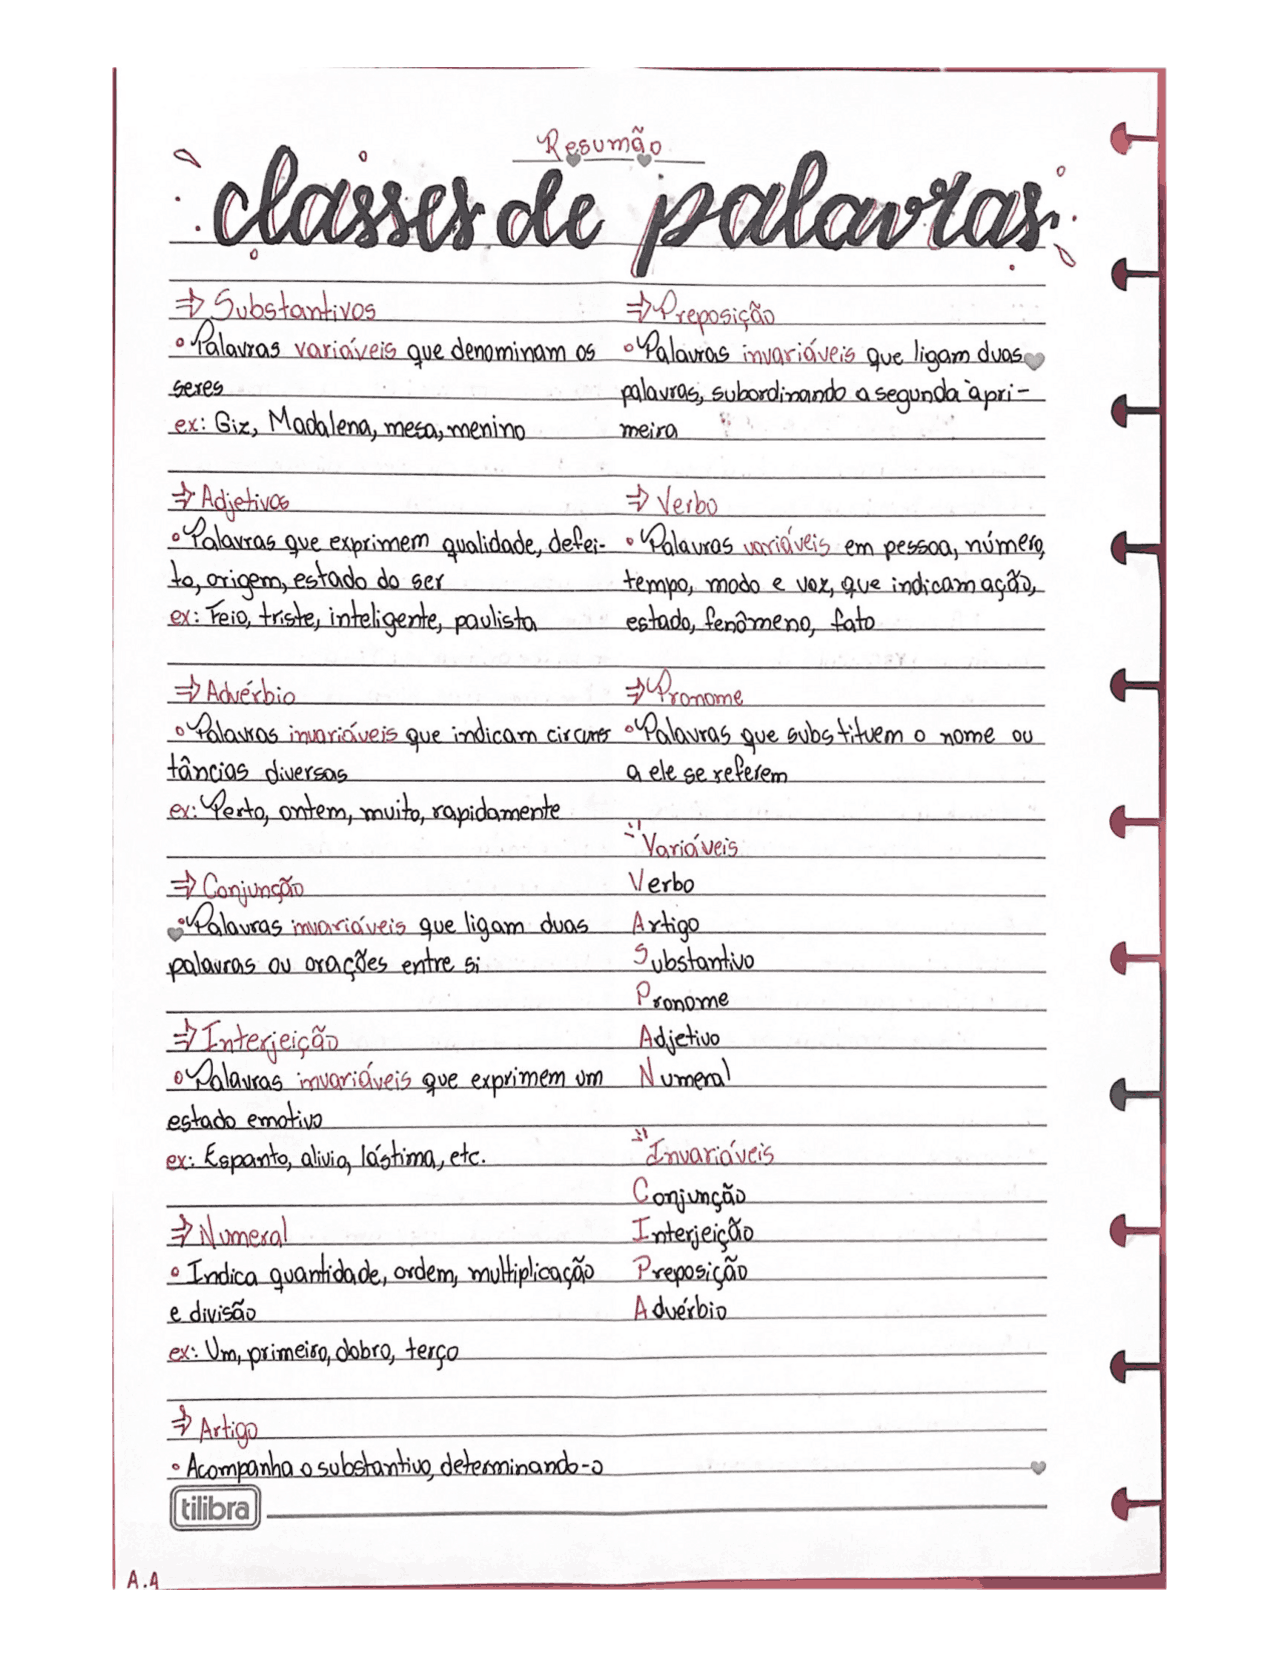 Resumão
classes de palavras
⇒ Substantivos
• Palavras variáveis que denominam os
seres
ex: Giz, Madalena, mesa, menino
⇒ Adjetivos
• Palavras que exprimem qualidade, defei-
to, origem, estado do ser
ex: Feio, triste, inteligente, paulista
⇒ Advérbio
• Palavras invariáveis que indicam circuns
tâncias diversas
ex: Perto, ontem, muito, rapidamente
⇒ Conjunção
• Palavras invariáveis que ligam duas
palavras ou orações entre si
⇒ Interjeição
• Palavras invariáveis que exprimem um
estado emotivo
ex: Espanto, alivio, lástima, etc.
⇒ Numeral
• Indica quantidade, ordem, multiplicação
e divisão
ex: Um, primeiro, dobro, terço
⇒ Artigo
• Acompanha o substantivo, determinando-o
⇒ Preposição
• Palavras invariáveis que ligam duas
palavras, subordinando a segunda à pri-
meira
⇒ Verbo
• Palavras variáveis em pessoa, número,
tempo, modo e voz, que indicam ação,
estado, fenômeno, fato
⇒ Pronome
• Palavras que substituem o nome ou
a ele se referem
Variáveis
Verbo
Artigo
Substantivo
Pronome
Adjetivo
Numeral
Invariáveis
Conjunção
Interjeição
Preposição
Advérbio
tilibra
A.A